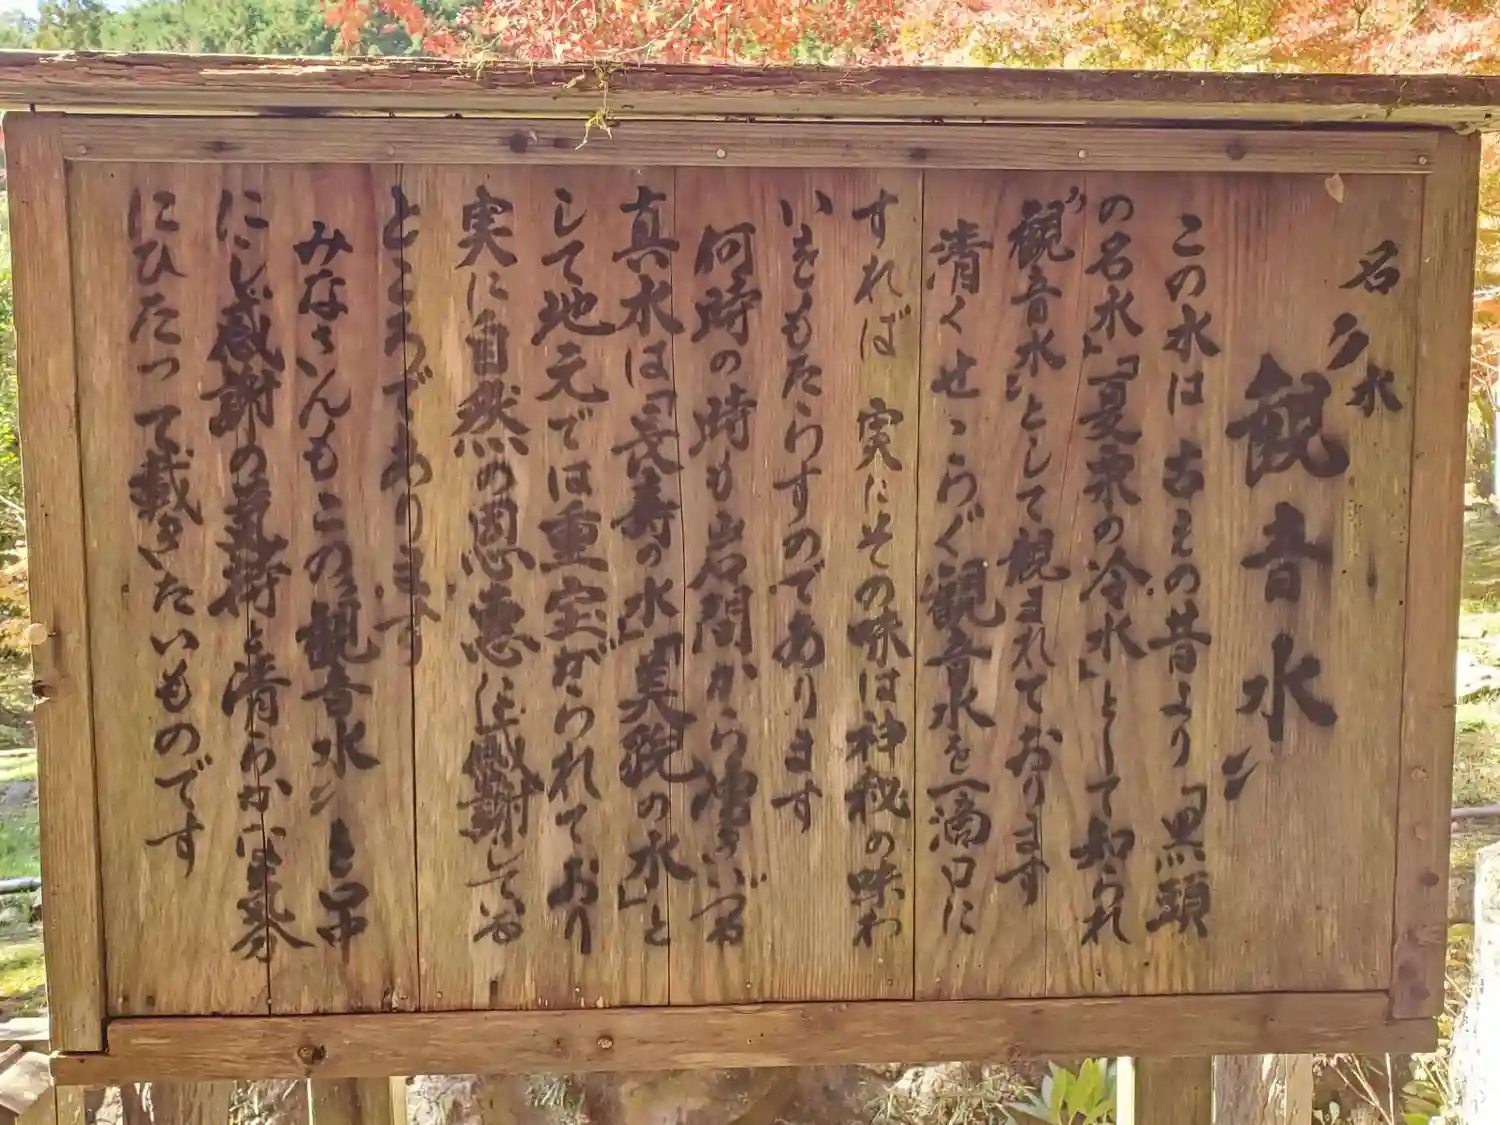 名水
〃観音水〃
この水は古えの昔より「黒頭
の名水」「夏泉の冷水」として知られ
〃観音水〃として観まれております
清くせゝらぐ観音水を一滴口に
すれば 実にその味は神秘の味わ
いをもたらすのであります
何時の時も岩間から湧きいづる
真水は「長寿の水」「美貌の水」と
して地元では重宝がられており
実に自然の恩恵に感謝している
ところであります
みなさんもこの〃観音水〃を口中
にし感謝の気持と清らかな気分
にひたって戴きたいものです